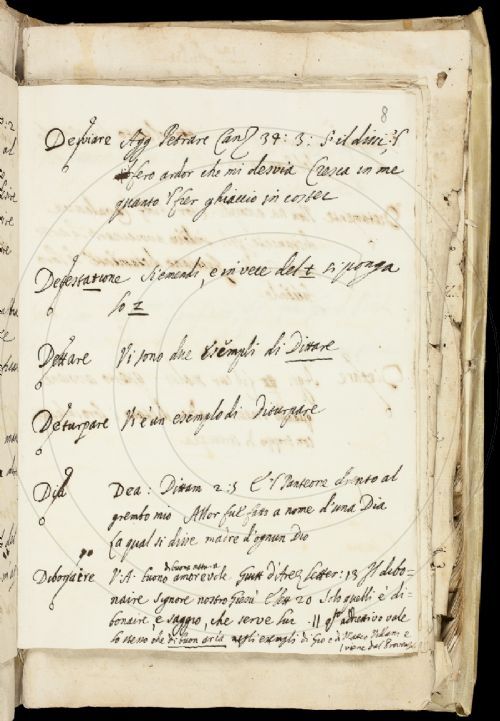 8
Desviare Agg Petrarc Canz 34: 3: S'il dissi, 'l
fero ardor che mi desvia Cresca in me
quanto 'l fier ghiaccio in costei
Detestatione Si emendi, e in vece del t si ponga
lo z
Dettare Vi sono due esempli di Dittare
Deturpare Vi è un esemplo di Diturpare
Dia Dea: Dittam 2: 5 E 'l Panteone drento al
grembo mio Allor fu fatto a nome d'una Dia
La qual si dice madre d'ognun Dio
po
di buona natura
Debonaere V: A: buono amorevole Guitt d'Arez Letter: 13 Il debo-
naire Signore nostro Giesù Lett 20 Solo quelli è di-
bonaire e saggio, che serve lui Il qsto adiettivo vale
lo stesso che di buon aria negli esempli di Gio e di Matteo Villani e
viene dal